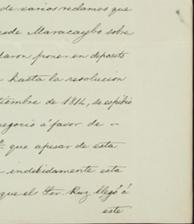 de varios reclamos que
de Maracaybo sobre
daron poner en deposito
hasta la resolucion
tiembre de 1814, se espidió
egocio á favor de --
que apesar de esta
indebidamente esta
que el Sor. Ruz llegó á
este